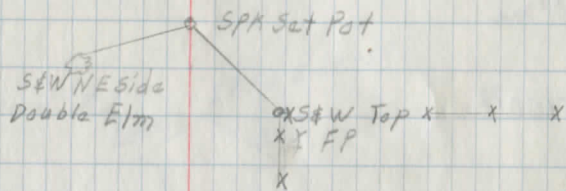 SPK Set Pot
S&W NE Side
Double Elm
S&W Top
FP